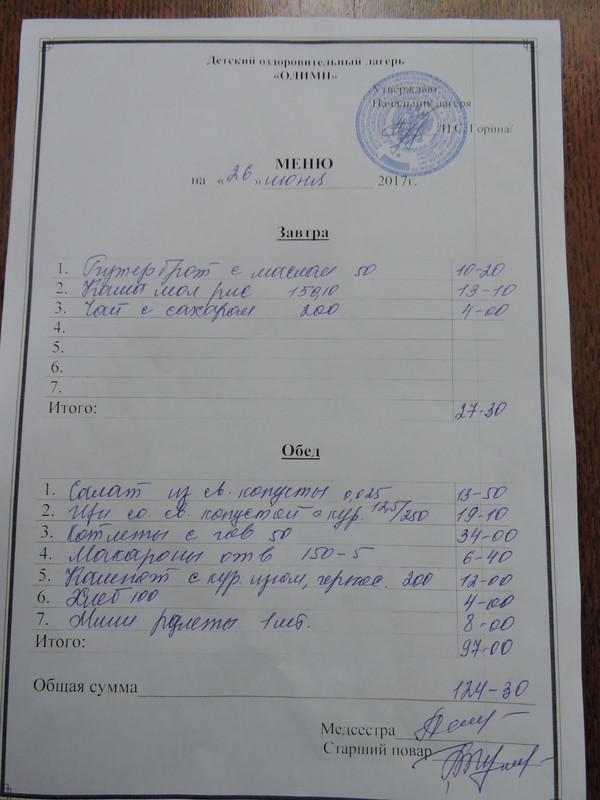 Детский оздоровительный лагерь
«ОЛИМП»
Утверждаю:
Начальник лагеря
/П.С. Горина/
МЕНЮ
на «26» июня 2017г.
Завтра
1. Бутерброт с маслом 50 10-20
2. Каша мол рис 150,10 13-10
3. Чай с сахаром 200 4-00
4.
5.
6.
7.
Итого: 27-30
Обед
1. Салат из св. копусты 0,025 13-50
2. Щи со. св. копустой с кур. 12,5/250 19-10
3. Котлеты с гов 50 34-00
4. Макароны отв 150-5 6-40
5. Компот с кур. изюм, чернос. 200 12-00
6. Хлеб 100 4-00
7. Мини ролеты 1 шт. 8-00
Итого: 97-00
Общая сумма 124-30
Медсестра
Старший повар